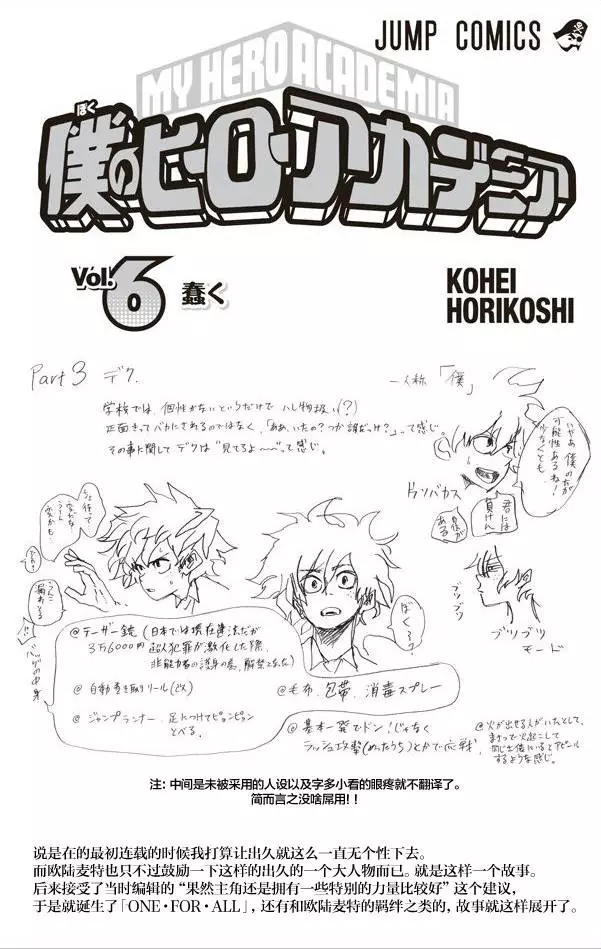 JUMP COMICS
MY HERO ACADEMIA
ぼく
僕のヒーローアカデミア
Vol.6 蠢く
KOHEI
HORIKOSHI
Part 3 デク.
一人称「僕」
学校では、個性がないというだけで ハレ物扱い(?)
正面きってバカにされるのではなく、「ああ、いたの?つか誰だっけ?」って感じ。
その事に関して デクは"見てろよ〜〜"って感じ。
いやあ 僕の方が
可能性あるね!
少なくとも
君には
負けん
自信が
ある
ブツブツ
ブツブツ
モード
ぼくろ?
@テーザー銃 (日本では現在違法だが
3万6000円 超人犯罪が激化した際、
非能力者の護身の為、解禁となった)
@自動巻き取りリール(改)
@毛布、包帯、消毒スプレー
@ジャンプランナー、足につけてピョンピョン
とべる。
バッグの中身
@基本一発でドン!じゃなく
ラッシュ攻撃(めったうち)とかで応戦
@火が出せる人がいたとして、
するような感じ。
注: 中间是未被采用的人设以及字多小看的眼疼就不翻译了。
简而言之没啥屌用!!
说是在的最初连载的时候我打算让出久就这么一直无个性下去。
而欧陆麦特也只不过鼓励一下这样的出久的一个大人物而已。就是这样一个故事。
后来接受了当时编辑的“果然主角还是拥有一些特别的力量比较好”这个建议,
于是就诞生了「ONE·FOR·ALL」, 还有和欧陆麦特的羁绊之类的, 故事就这样展开了。